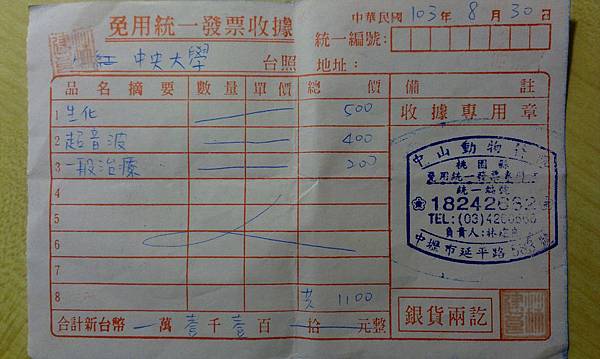 免用統一發票收據
中華民國 103年 8月 30日
統一編號：
紅 中央大學 台照 地址：
品名摘要 數量 單價 總價 備註
1 生化 500 收據專用章
2 超音波 400
3 一般治療 200
4
5
6
7
8 共 1100
中山動物
桃園縣
統一編號
18242662
TEL:(03)
負責人:林
中壢市延平路
合計新台幣 萬 壹 千 壹 百 拾 元整
銀貨兩訖